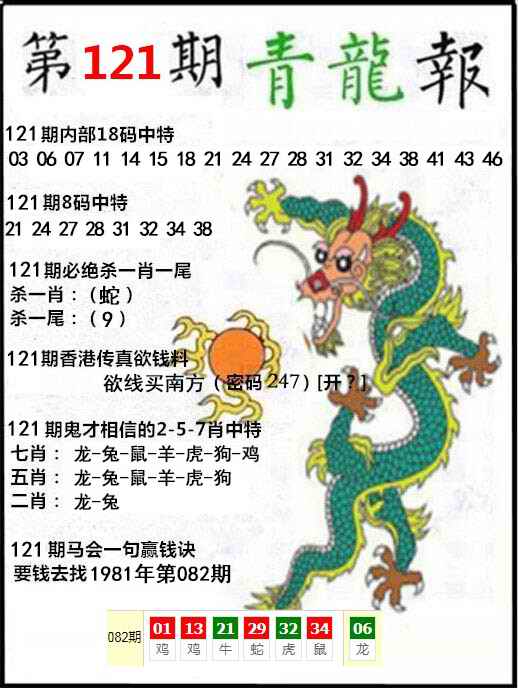 第121期青龍報
121期内部18码中特
03 06 07 11 14 15 18 21 24 27 28 31 32 34 38 41 43 46
121期8码中特
21 24 27 28 31 32 34 38
121期必绝杀一肖一尾
杀一肖：（蛇）
杀一尾：（9）
121期香港传真欲钱料
欲线买南方（密码247）[开？]
121期鬼才相信的2-5-7肖中特
七肖： 龙-兔-鼠-羊-虎-狗-鸡
五肖： 龙-兔-鼠-羊-虎-狗
二肖： 龙-兔
121期马会一句赢钱诀
要钱去找1981年第082期
082期 01 13 21 29 32 34 06
鸡 鸡 牛 蛇 虎 鼠 龙